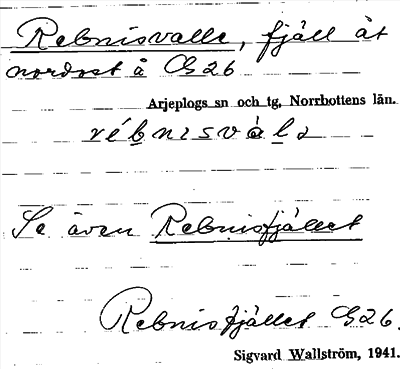 Rebnisvalle, fjäll åt
nordost å G26
Arjeplogs sn och tg, Norrbottens län.
rébnɪsvàlɜ
Se även Rebnisfjället
Rebnisfjället G26.
Sigvard Wallström, 1941.